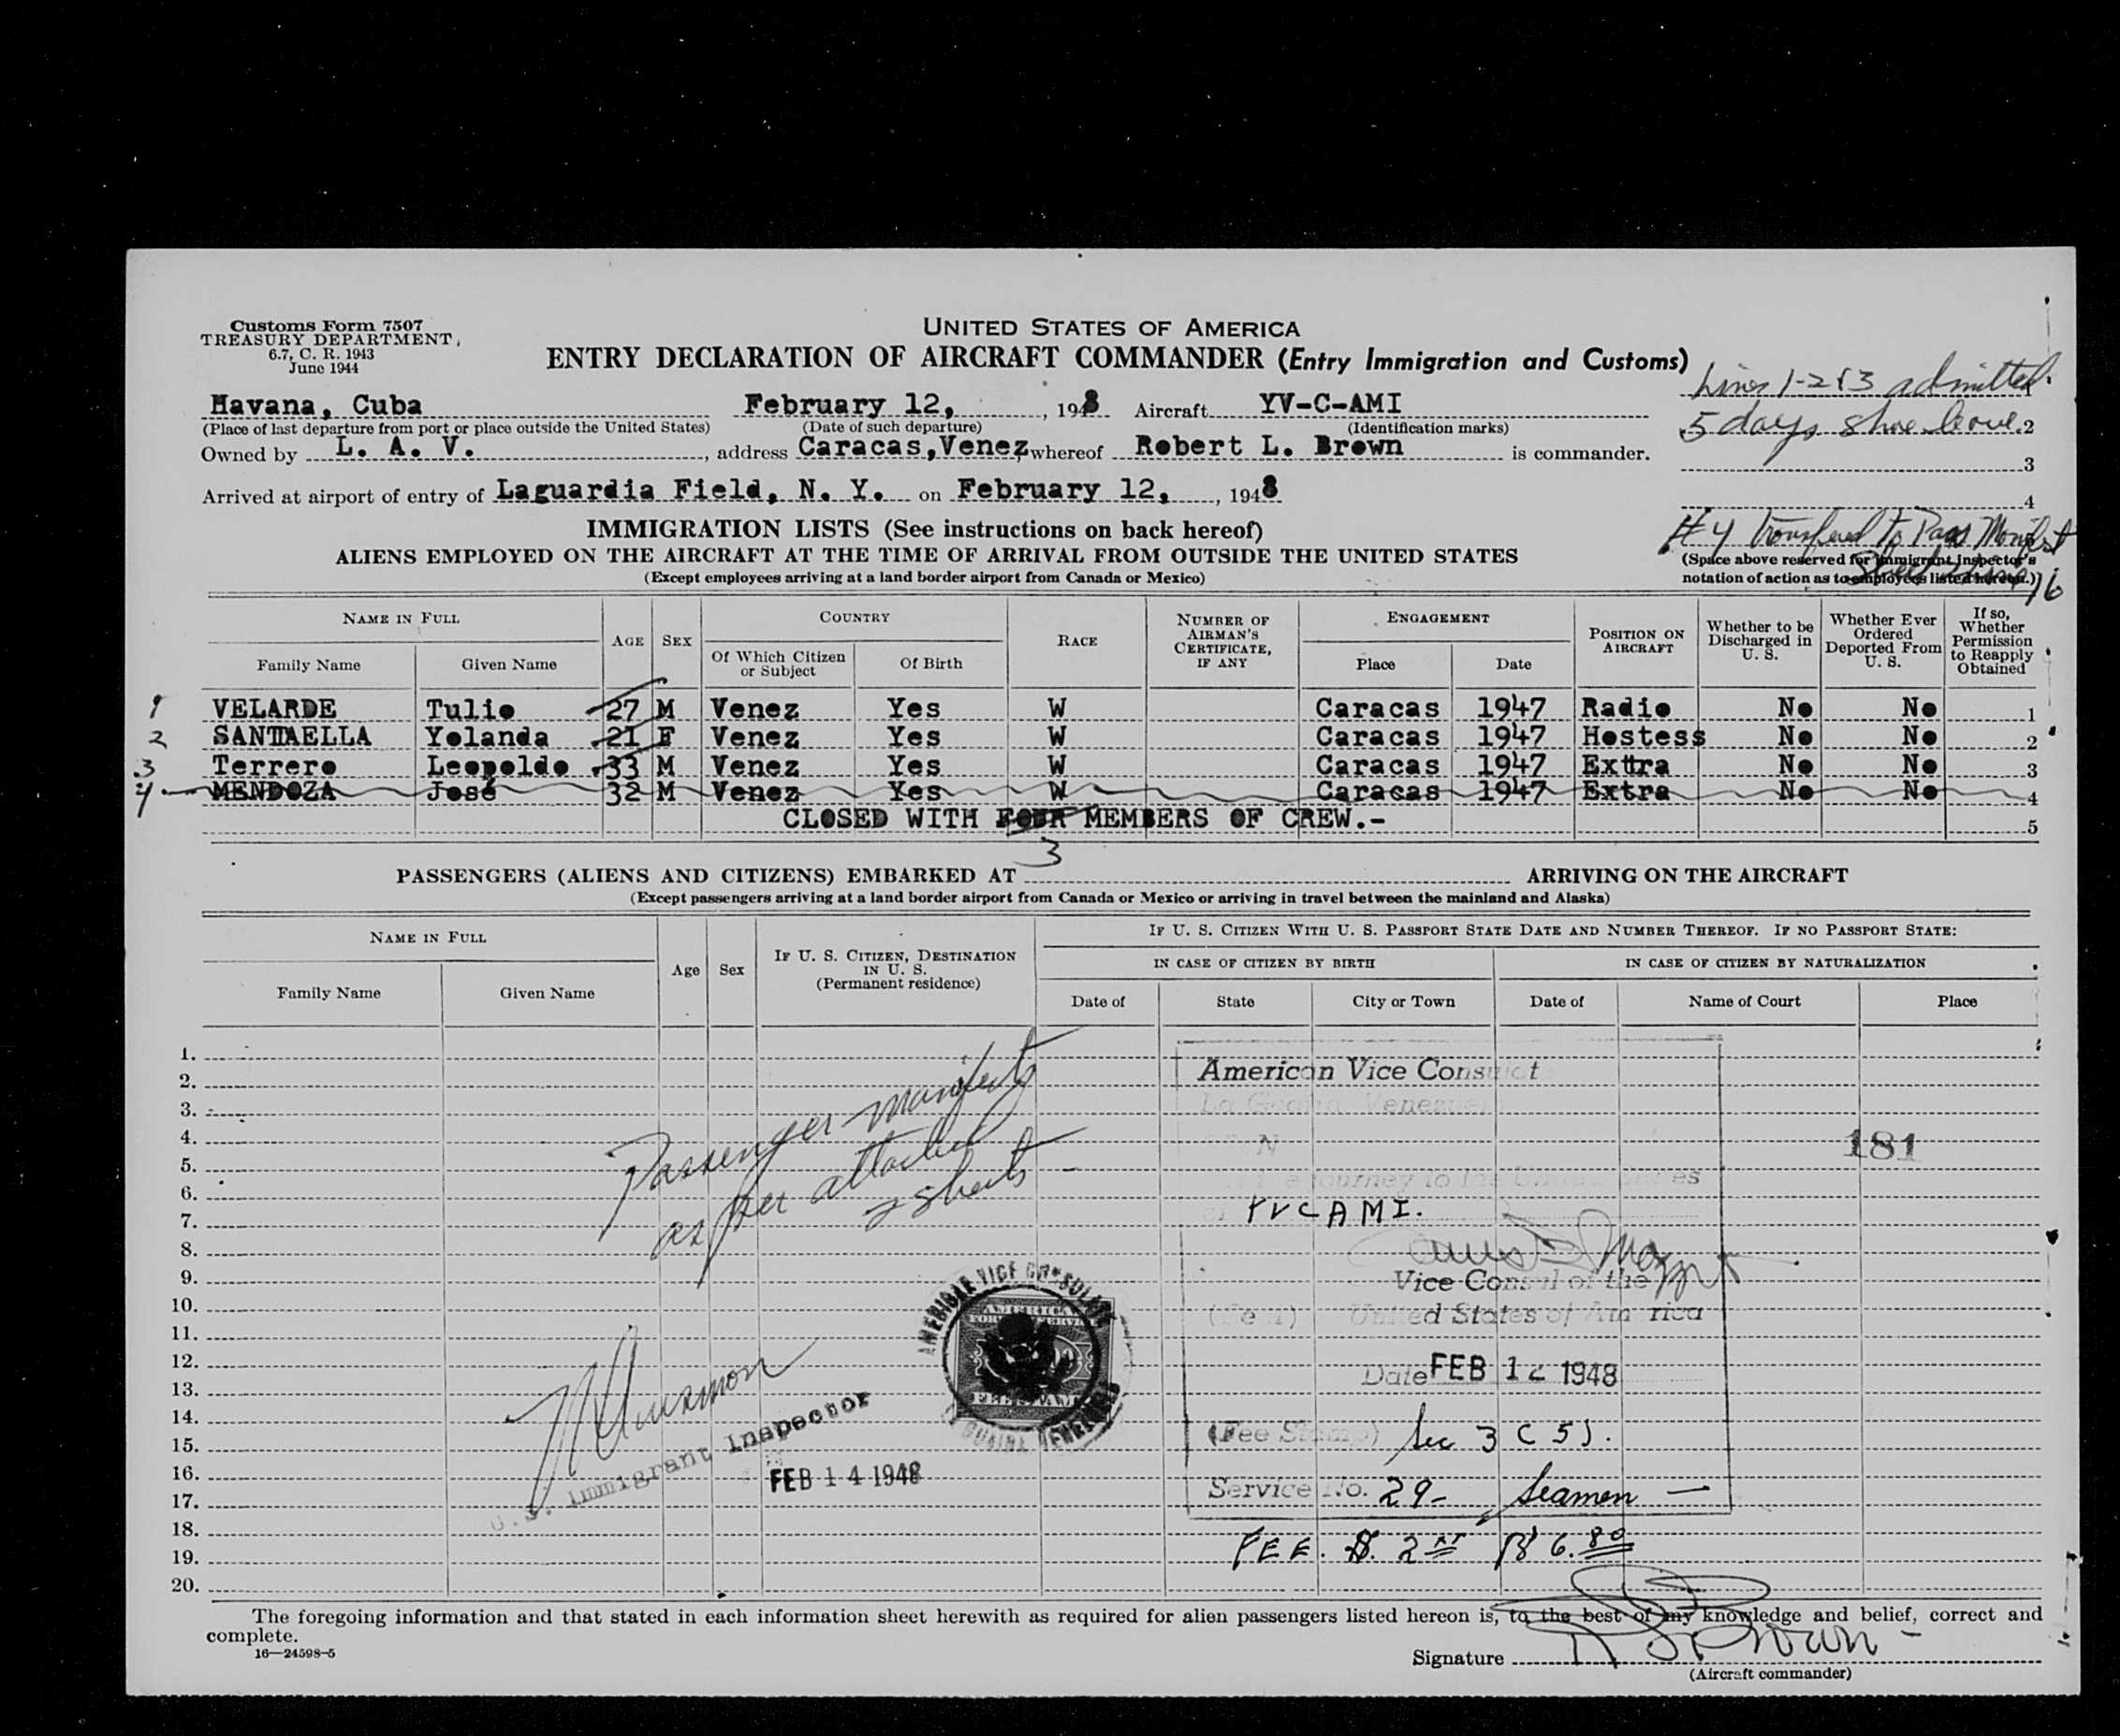 Customs Form 7507
TREASURY DEPARTMENT
6.7, C. R. 1943
June 1944
UNITED STATES OF AMERICA
ENTRY DECLARATION OF AIRCRAFT COMMANDER (Entry Immigration and Customs)
Lines 1-2 & 3 admitted 1
5 days shore leave. 2
3
4
#4 transferred to Pass Manifest
(Space above reserved for immigrant inspector's
notation of action as to employees listed hereon.)
Havana, Cuba February 12, , 1948 Aircraft YV-C-AMI
(Place of last departure from port or place outside the United States) (Date of such departure) (Identification marks)
Owned by L. A. V. , address Caracas, Venez, whereof Robert L. Brown is commander.
Arrived at airport of entry of Laguardia Field, N. Y. on February 12, , 1948
IMMIGRATION LISTS (See instructions on back hereof)
ALIENS EMPLOYED ON THE AIRCRAFT AT THE TIME OF ARRIVAL FROM OUTSIDE THE UNITED STATES
(Except employees arriving at a land border airport from Canada or Mexico)
NAME IN FULL AGE SEX COUNTRY RACE NUMBER OF AIRMAN'S CERTIFICATE, IF ANY ENGAGEMENT POSITION ON AIRCRAFT Whether to be Discharged in U. S. Whether Ever Ordered Deported From U. S. If so, Whether Permission to Reapply Obtained
Family Name Given Name Of Which Citizen or Subject Of Birth Place Date
1 VELARDE Tulio 27 M Venez Yes W Caracas 1947 Radio No No 1
2 SANTAELLA Yolanda 21 F Venez Yes W Caracas 1947 Hostess No No 2
3 Terrero Leopoldo 33 M Venez Yes W Caracas 1947 Exttra No No 3
4 MENDOZA José 32 M Venez Yes W Caracas 1947 Extra No No 4
CLOSED WITH FOUR MEMBERS OF CREW.- 5
3
PASSENGERS (ALIENS AND CITIZENS) EMBARKED AT ARRIVING ON THE AIRCRAFT
(Except passengers arriving at a land border airport from Canada or Mexico or arriving in travel between the mainland and Alaska)
NAME IN FULL Age Sex IF U. S. CITIZEN, DESTINATION IN U. S. (Permanent residence) IF U. S. CITIZEN WITH U. S. PASSPORT STATE DATE AND NUMBER THEREOF. IF NO PASSPORT STATE:
IN CASE OF CITIZEN BY BIRTH IN CASE OF CITIZEN BY NATURALIZATION
Family Name Given Name Date of State City or Town Date of Name of Court Place
1.
2.
3.
4.
5.
6.
7.
8.
9.
10.
11.
12.
13.
14.
15.
16.
17.
18.
19.
20.
Passenger manifests
as per attached
2 sheets
American Vice Consulat
La Guaira, Venezuela
181
journey to the United States
YVCAMI.
Vice Consul of the
United States of America
Date FEB 12 1948
(Fee Stamp) Sec 3 (5).
Service No. 29- Seamen —
FEE. $. 2 Bs 6.80
AMERICAN VICE CONSULATE
LA GUAIRA VENEZUELA
U.S. Immigrant Inspector
FEB 14 1948
The foregoing information and that stated in each information sheet herewith as required for alien passengers listed hereon is, to the best of my knowledge and belief, correct and
complete.
16—24598-5
Signature R L Brown
(Aircraft commander)